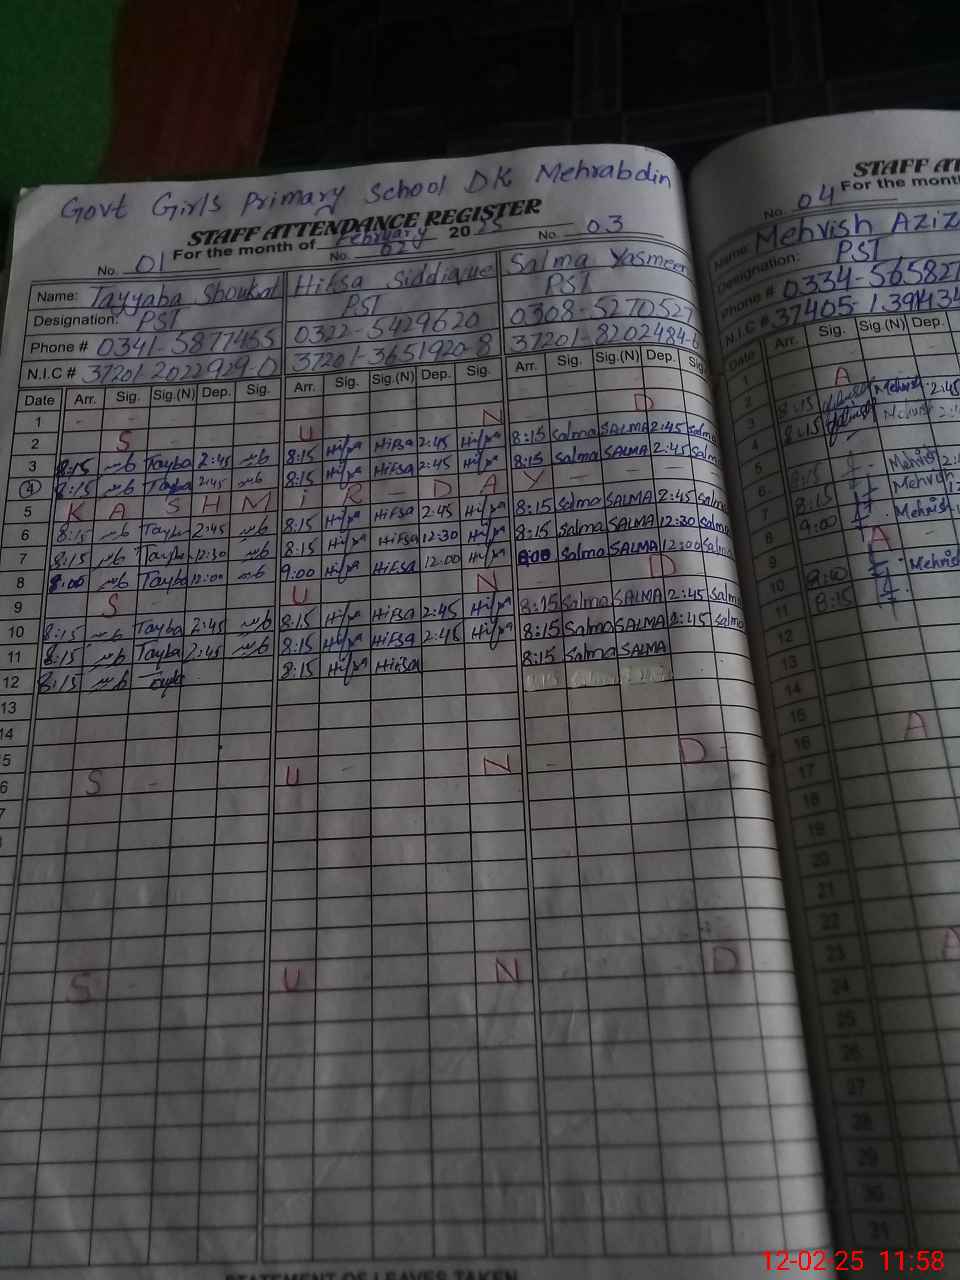 Govt Girls Primary School DK Mehrabdin
STAFF ATTENDANCE REGISTER
For the month of February 2025
No. 01 No. 02 No. 03
Name: Tayyaba Shoukat Hifsa Siddique Salma Yasmeen
Designation: PST PST PST
Phone # 0341-5877455 0322-5429620 0308-5270527
N.I.C # 37201-2022929-0 37201-3651920-8 37201-8202484-6
Date Arr. Sig. Sig.(N) Dep. Sig. Arr. Sig. Sig.(N) Dep. Sig. Arr. Sig. Sig.(N) Dep. Sig.
1
2 S U N D
3 8:15 Tayba 2:45 8:15 Hifsa Hifsa 2:45 Hifsa 8:15 Salma SALMA 2:45 Salma
4 8:15 Tayba 2:45 8:15 Hifsa Hifsa 2:45 Hifsa 8:15 Salma SALMA 2:45 Salma
5 K A S H M i R - D A Y
6 8:15 Tayba 2:45 8:15 Hifsa Hifsa 2:45 Hifsa 8:15 Salma SALMA 2:45 Salma
7 8:15 Tayba 12:30 8:15 Hifsa Hifsa 12:30 Hifsa 8:15 Salma SALMA 12:30 Salma
8 Tayba 12:00 9:00 Hifsa Hifsa 12:00 Hifsa 9:00 Salma SALMA 12:00 Salma
9 S U N D
10 8:15 Tayba 2:45 8:15 Hifsa Hifsa 2:45 Hifsa 8:15 Salma SALMA 2:45 Salma
11 8:15 Tayba 2:45 8:15 Hifsa Hifsa 2:45 Hifsa 8:15 Salma SALMA 2:45 Salma
12 8:15 8:15 Hifsa Hifsa 8:15 Salma SALMA
13
14
15
6 S U N D
7
S U N D
STATEMENT OF LEAVES TAKEN
STAFF AT
For the mont
No. 04
Name: Mehvish Aziz
Designation: PST
Phone # 0334-565827
N.I.C # 37405-1391434
Date Arr. Sig. Sig.(N) Dep.
1
2 A
3 8:15 Mehvish 2:45
4 8:15 Mehvish
5
6 8:15 Mehvish
7 8:15 Mehvish
8 9:00 Mehvish
9 A
10 Mehvish
11 8:15
12
13
14
15
16 A
17
18
19
20
21
22
23 A
24
25
26
27
28
29
30
31
12-02-25 11:58